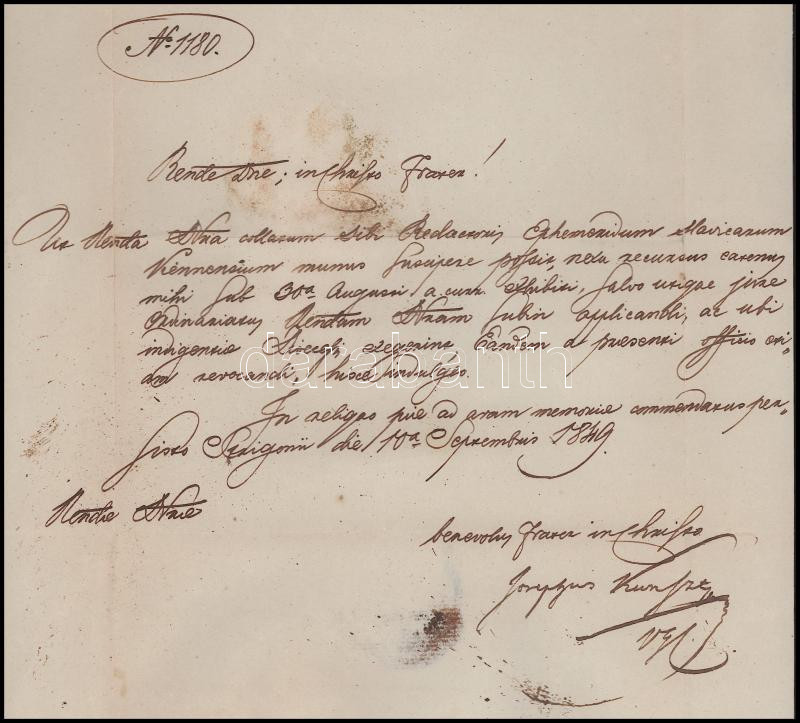 No 1180.
Rende Dne; in Christo Frater!
Ut Renda Dtio collatum sibi Redactoris Ephemeridum Slavicarum
Viennensium munus suscipere possit, nexu recursus earenus
mihi sub 30a Augusti a. curr. exhibiti, salvo utique jure
Ordinariatus Rendam Dtionem subin applicandi, ac ubi
indigentia Dioecesis exegerint Eandem a praesenti officio eti-
am revocandi, hisce indulgeo.
In reliquo piae ad aram memoriae commendatus per-
sisto Strigonii die 10a Septembris 1849.
Rendae Dtionis
benevolus Frater in Christo
Josephus Kunszt
darabanth